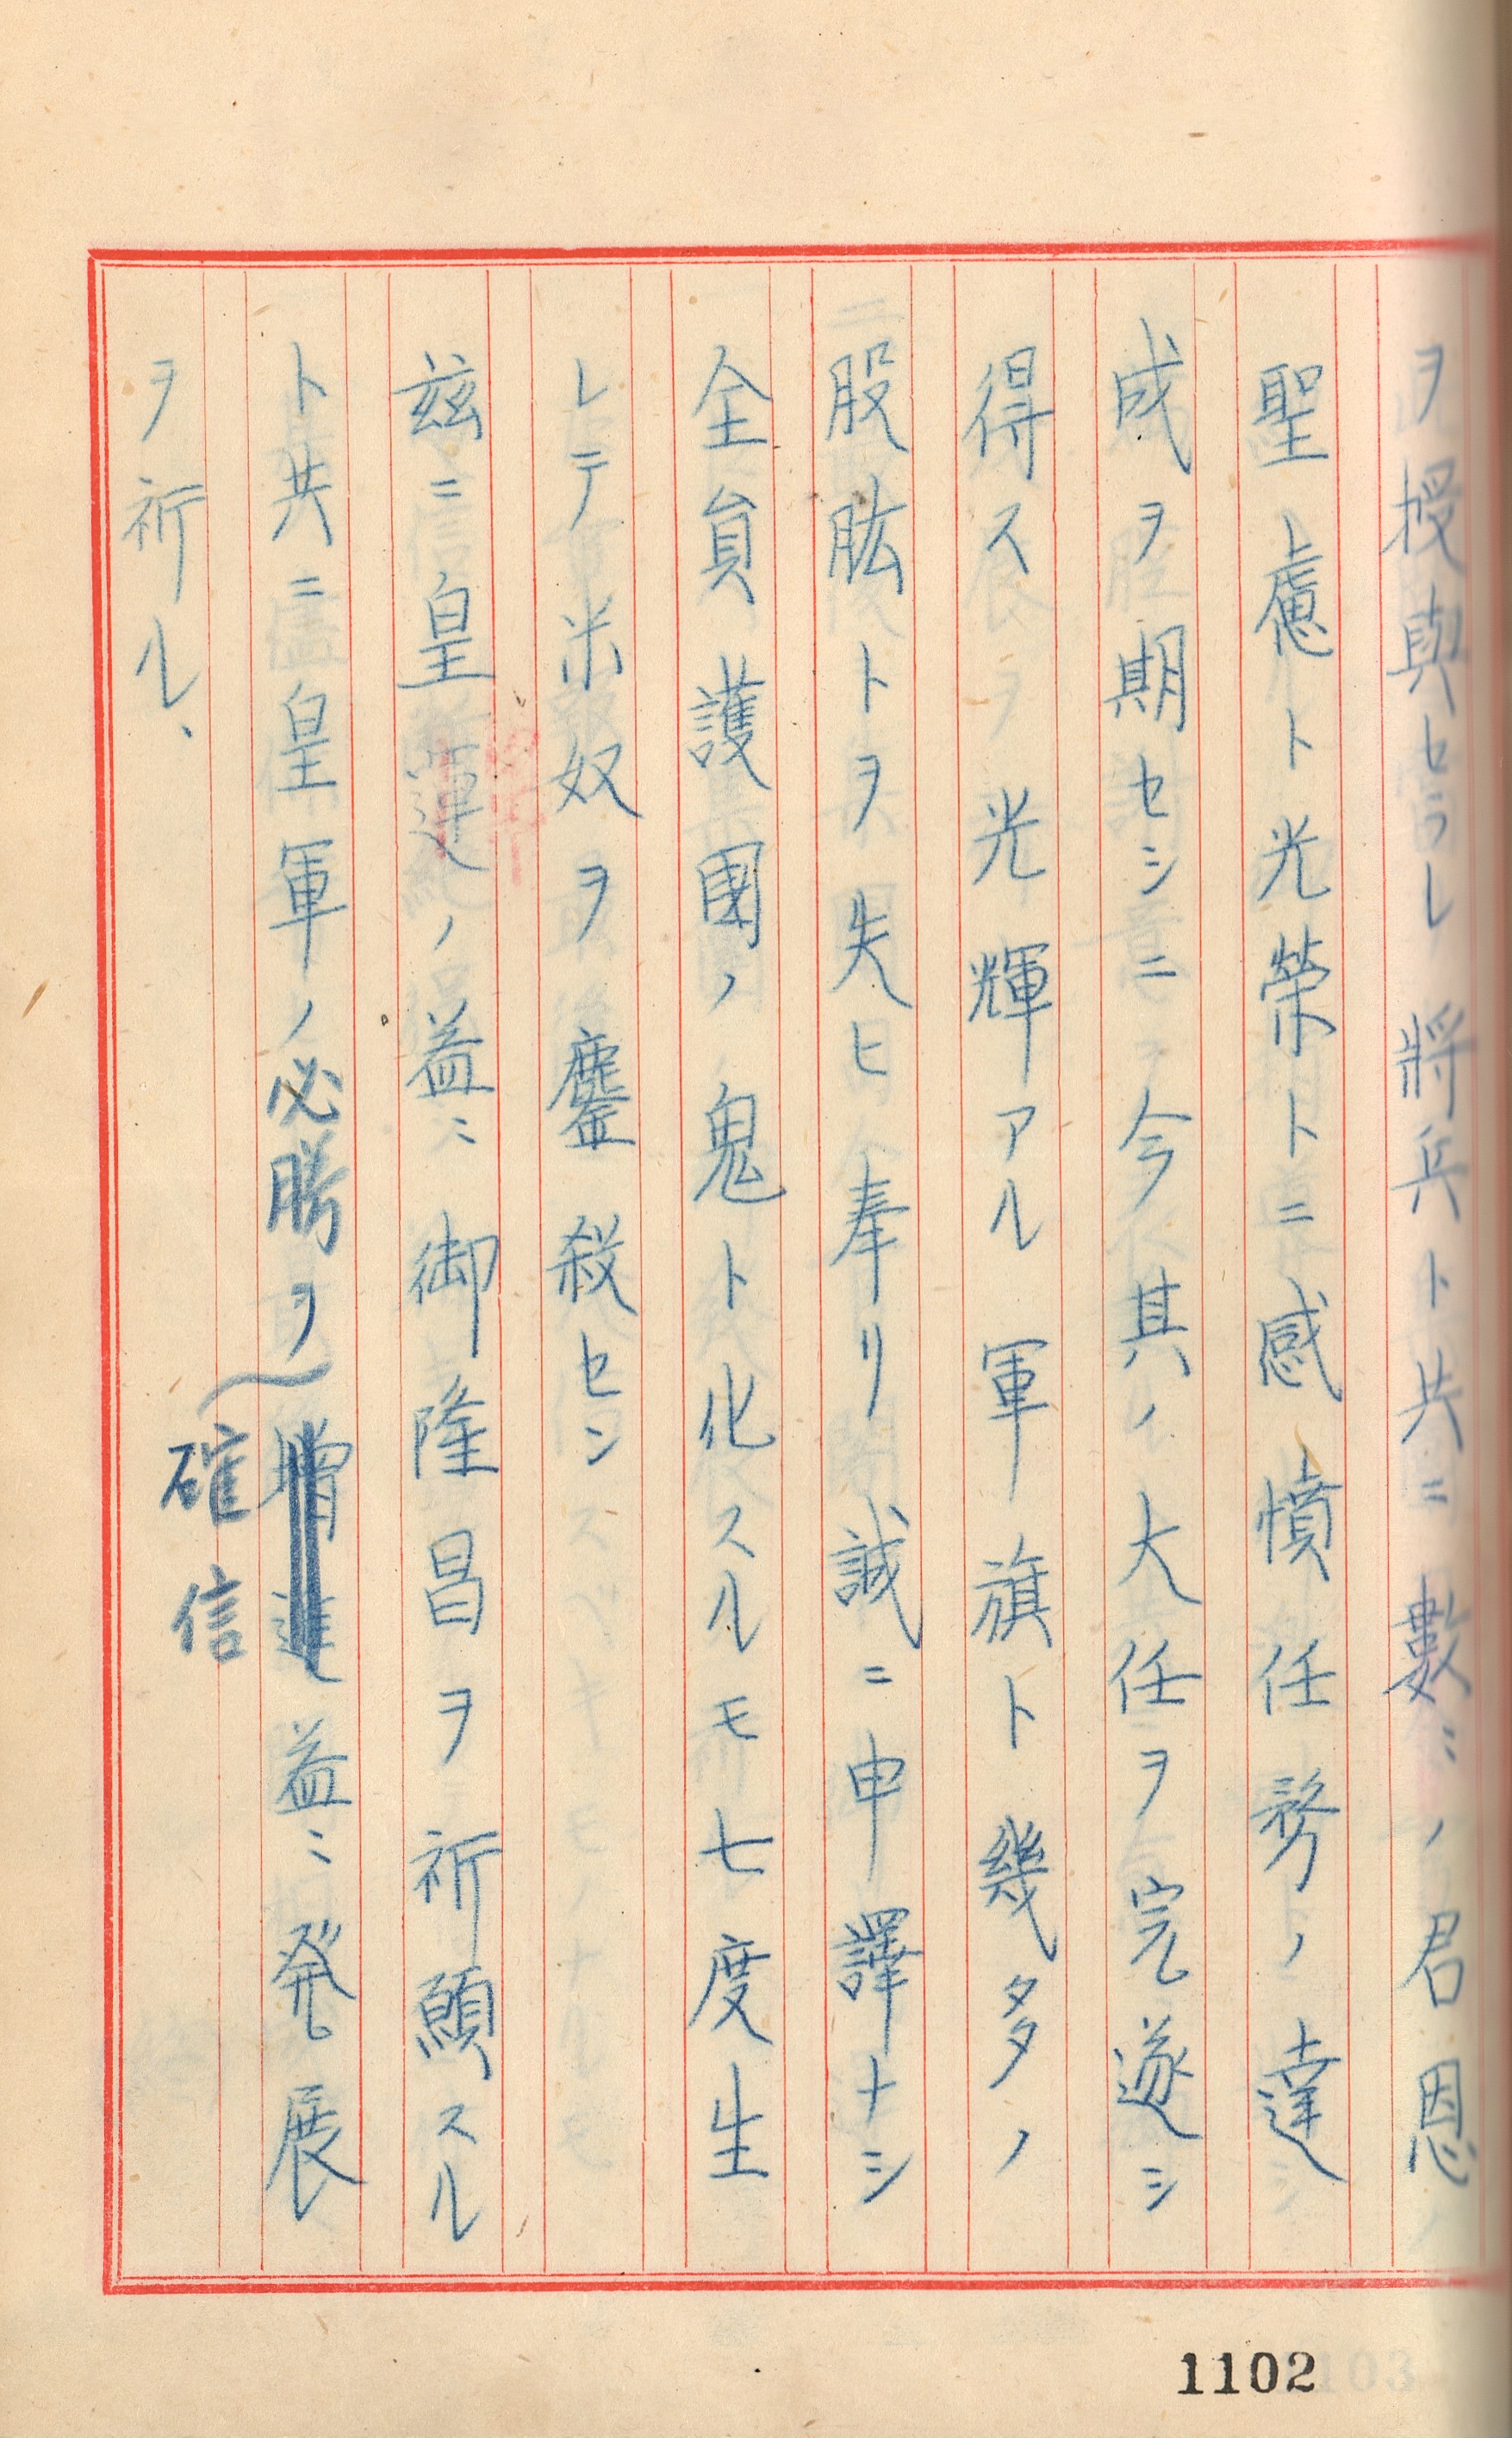 ヲ授與セラレ將兵ト共ニ數々ノ君恩
聖慮ト光榮トニ感憤任務ノ達
成ヲ期セシニ今其ノ大任ヲ完遂シ
得ス光輝アル軍旗ト幾多ノ
股肱トヲ失ヒ奉リ誠ニ申譯ナシ
全員護國ノ鬼ト化スルモ七度生
レテ米奴ヲ鏖殺セン
茲ニ皇運ノ益々御隆昌ヲ祈願スル
ト共ニ皇軍ノ必勝ヲ増進益々発展
確信
ヲ祈ル、
1102